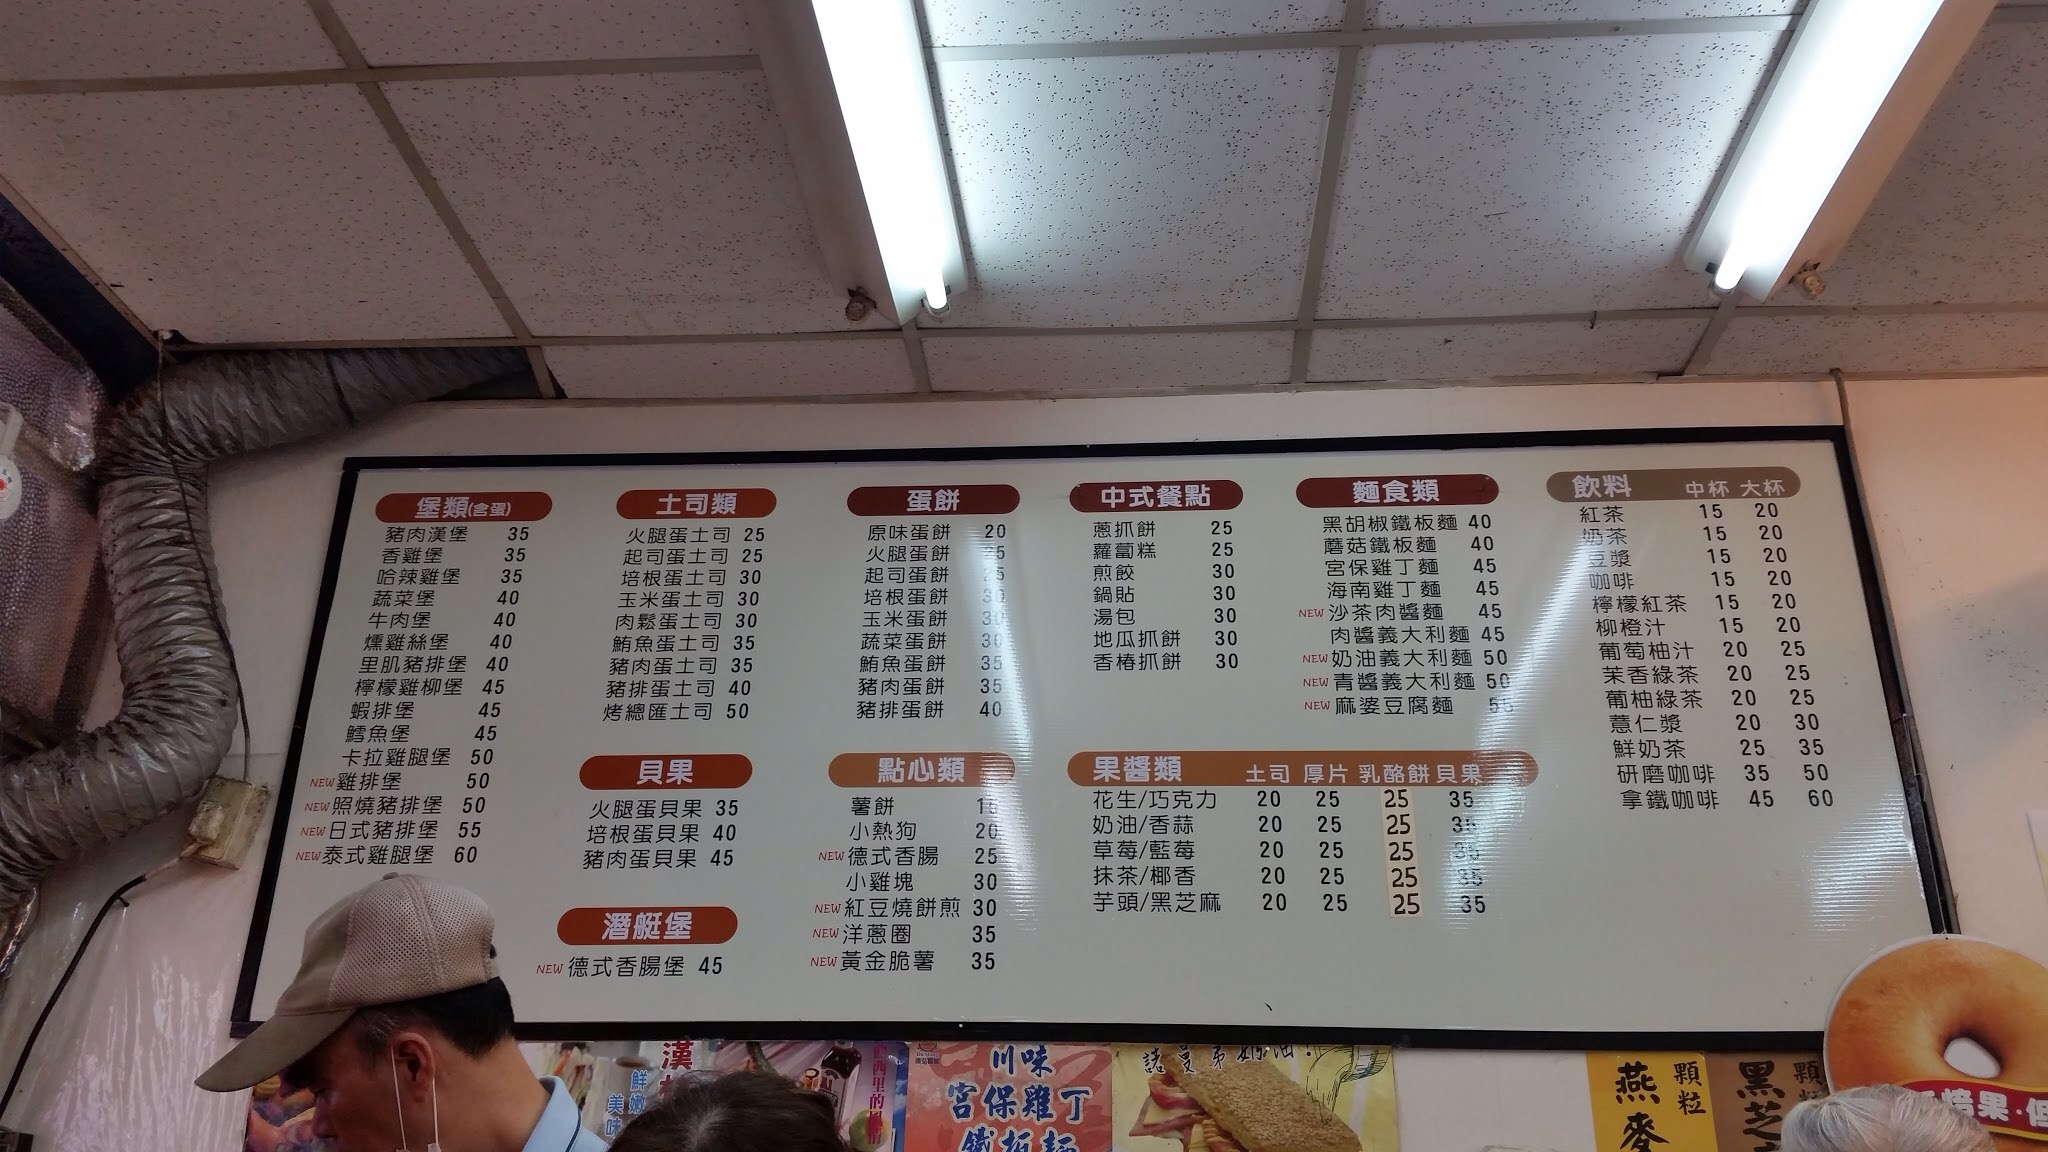 堡類(含蛋)
豬肉漢堡 35
香雞堡 35
哈辣雞堡 35
蔬菜堡 40
牛肉堡 40
燻雞絲堡 40
里肌豬排堡 40
檸檬雞柳堡 45
蝦排堡 45
鱈魚堡 45
卡拉雞腿堡 50
NEW 雞排堡 50
NEW 照燒豬排堡 50
NEW 日式豬排堡 55
NEW 泰式雞腿堡 60
土司類
火腿蛋土司 25
起司蛋土司 25
培根蛋土司 30
玉米蛋土司 30
肉鬆蛋土司 30
鮪魚蛋土司 35
豬肉蛋土司 35
豬排蛋土司 40
烤總匯土司 50
貝果
火腿蛋貝果 35
培根蛋貝果 40
豬肉蛋貝果 45
潛艇堡
NEW 德式香腸堡 45
蛋餅
原味蛋餅 20
火腿蛋餅 25
起司蛋餅 25
培根蛋餅 30
玉米蛋餅 30
蔬菜蛋餅 30
鮪魚蛋餅 35
豬肉蛋餅 35
豬排蛋餅 40
點心類
薯餅 15
小熱狗 20
NEW 德式香腸 25
小雞塊 30
NEW 紅豆燒餅煎 30
NEW 洋蔥圈 35
NEW 黃金脆薯 35
中式餐點
蔥抓餅 25
蘿蔔糕 25
煎餃 30
鍋貼 30
湯包 30
地瓜抓餅 30
香椿抓餅 30
麵食類
黑胡椒鐵板麵 40
蘑菇鐵板麵 40
宮保雞丁麵 45
海南雞丁麵 45
NEW 沙茶肉醬麵 45
肉醬義大利麵 45
NEW 奶油義大利麵 50
NEW 青醬義大利麵 50
NEW 麻婆豆腐麵 55
果醬類 土司 厚片 乳酪餅 貝果
花生/巧克力 20 25 25 35
奶油/香蒜 20 25 25 35
草莓/藍莓 20 25 25 35
抹茶/椰香 20 25 25 35
芋頭/黑芝麻 20 25 25 35
飲料 中杯 大杯
紅茶 15 20
奶茶 15 20
豆漿 15 20
咖啡 15 20
檸檬紅茶 15 20
柳橙汁 15 20
葡萄柚汁 20 25
茉香綠茶 20 25
葡柚綠茶 20 25
薏仁漿 20 30
鮮奶茶 25 35
研磨咖啡 35 50
拿鐵咖啡 45 60
漢
鮮嫩
美味
川味
宮保雞丁
鐵板麵
顆粒
燕麥
黑芝
焙果·但